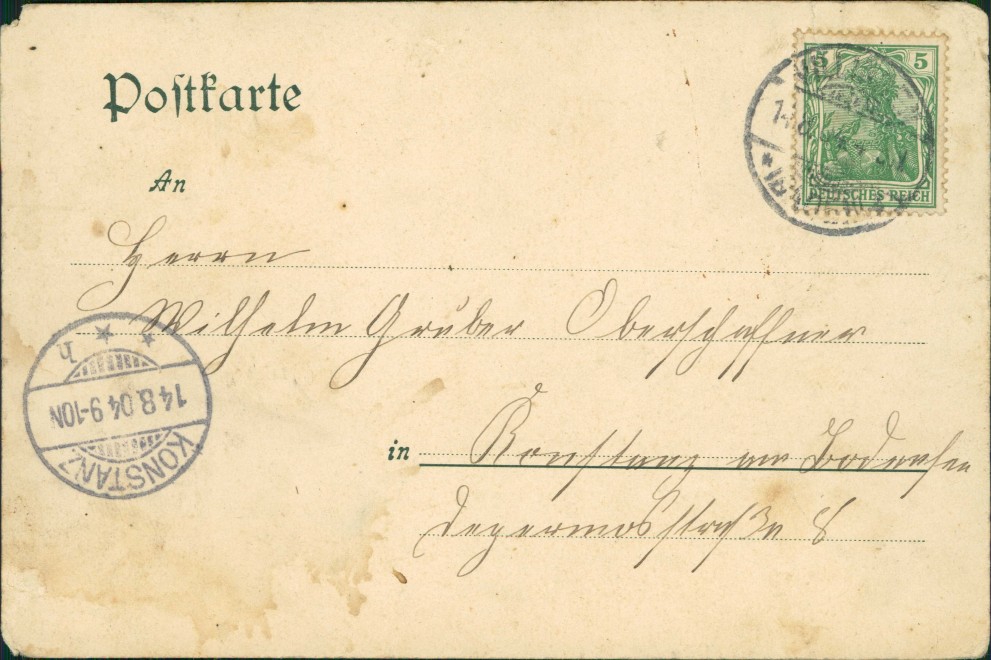 Postkarte
5 5
DEUTSCHES REICH
An
Herrn
Wilhelm Gruber Oberschaffner
in Konstanz am Bodensee
straße 8
KONSTANZ
14.8.04 9-10N
h